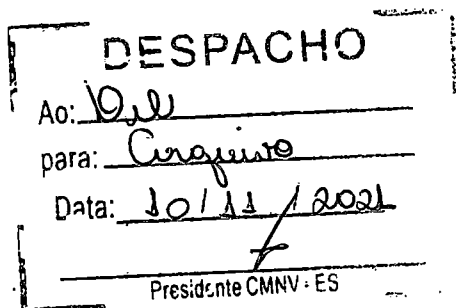 DESPACHO
Ao:
para: Arquivo
Data: 10/11/2021
Presidente CMNV - ES